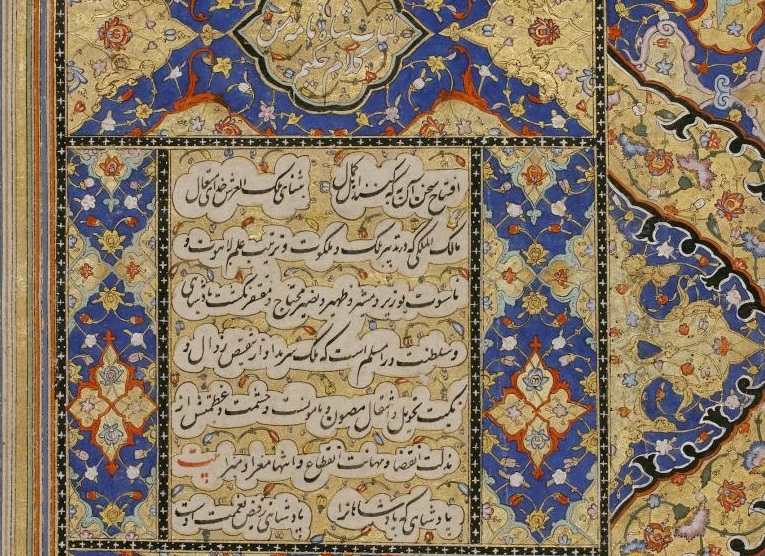 کتاب شاه نامه من
کلام حکیم
افتتاح سخن آن به که کنند اهل کمال بثنای ملک العرش خدای متعال
مالک الملکی که در تدبیر ملک و ملکوت و ترتیب عالم لاهوت و
ناسوت بوزیر و مشیر و ظهیر و نصیر محتاج و مفتقر نگشت پادشاهی
و سلطنت او را مسلم است که ملک سرمد او از زوال و
نکبت تحویل و انتقال مصون و مامونست و حشمت و عظمتش از
مذلت انقضا و مهانت انقطاع و انتها معرا و مبرا بیت
پادشاهی که پادشاهانرا پادشاهی ز فیض نعمت اوست